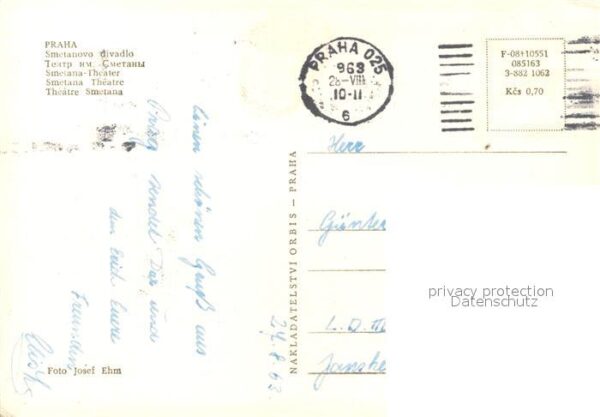 PRAHA
Smetanovo divadlo
Театр им. Сметаны
Smetana-Theater
Smetana Théatre
Theâtre Smetana
PRAHA 025
963
28-VIII
10-11
6
F-08*10551
085163
3-882 1062
Kčs 0,70
einen schönen Gruß aus
Prag sendet Dir
Freundin
24.8.63
NAKLADATELSTVÍ ORBIS – PRAHA
Herr
Günter
L.D.M
privacy protection
Datenschutz
Foto Josef Ehm